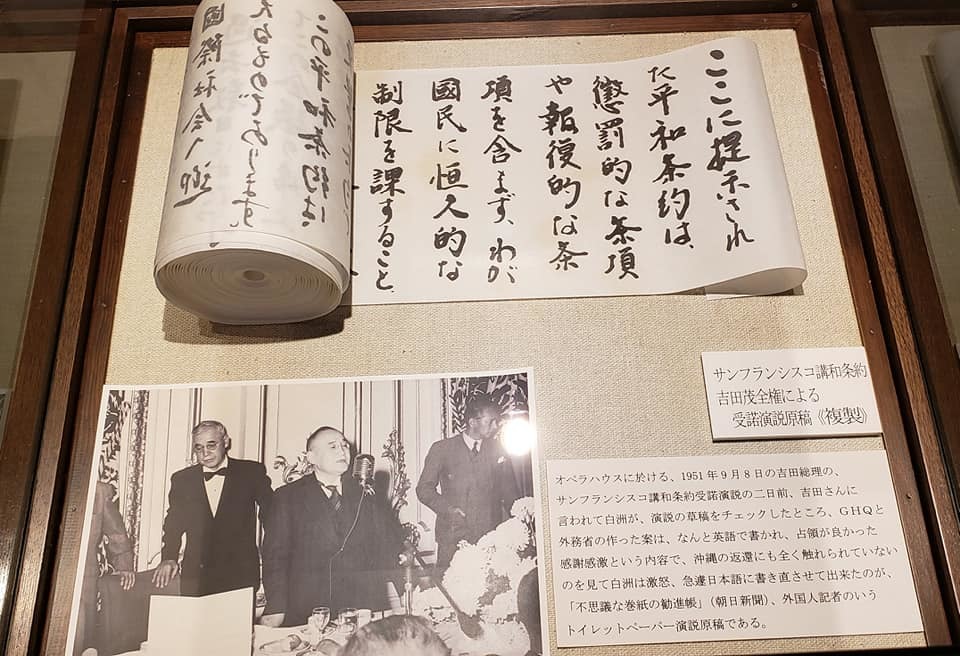 ここに提示され
た平和条約は、
懲罰的な条項
や報復的な条
項を含まず、わが
國民に恒久的な
制限を課すること、
國際社会へ迎
えるものであります。
この平和条約は、
サンフランシスコ講和条約
吉田茂全権による
受諾演説原稿《複製》
オペラハウスに於ける、1951年9月8日の吉田総理の、
サンフランシスコ講和条約受諾演説の二日前、吉田さんに
言われて白洲が、演説の草稿をチェックしたところ、GHQと
外務省の作った案は、なんと英語で書かれ、占領が良かった
感謝感激という内容で、沖縄の返還にも全く触れられていない
のを見て白洲は激怒、急遽日本語に書き直させて出来たのが、
「不思議な巻紙の勧進帳」(朝日新聞)、外国人記者のいう
トイレットペーパー演説原稿である。